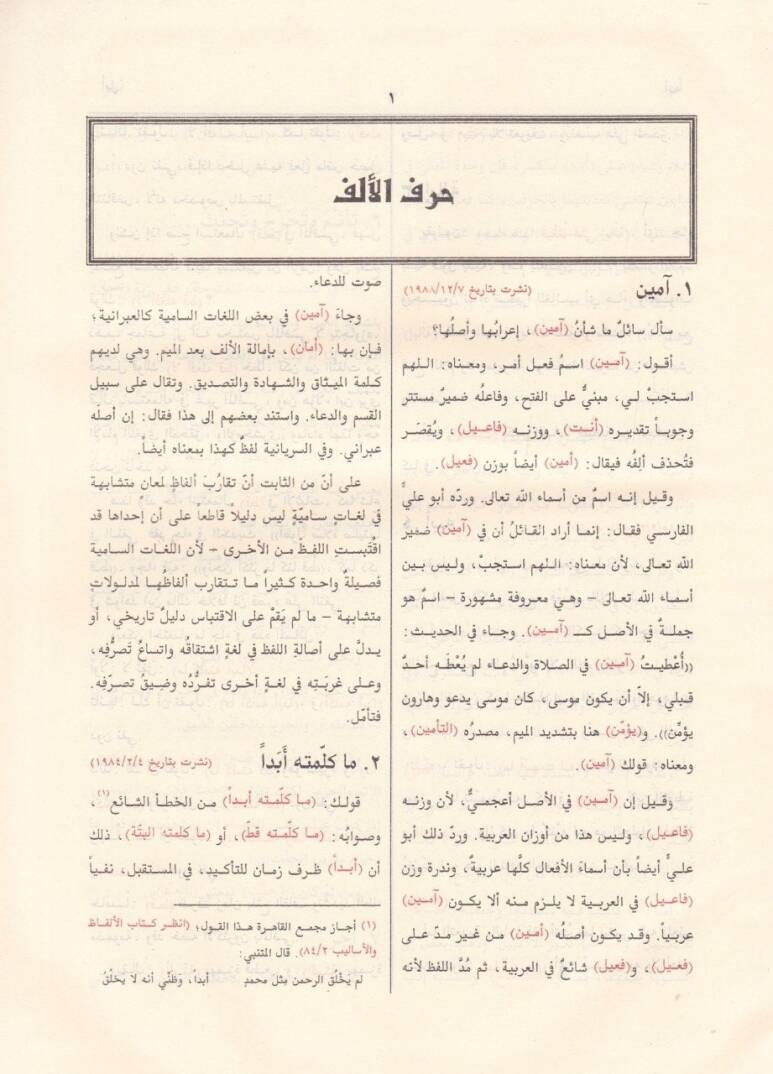 ١
حرف الألف
١. آمين (نشرت بتاريخ ١٩٨١/١٢/٧)
سأل سائلٌ ما شأنُ (آمين)، إعرابُها وأصلُها؟
أقول: (آمين) اسمُ فعل أمر، ومعناه: اللهم
استجبْ لي، مبنيٌّ على الفتح، وفاعلُه ضميرٌ مستتر
وجوباً تقديره (أنت)، ووزنه (فاعيل)، ويُقصَر
فتُحذف ألِفُه فيقال: (أمين) أيضاً بوزن (فعيل).
وقيل إنه اسمٌ من أسماء الله تعالى. وردّه أبو عليٍّ
الفارسي فقال: إنما أراد القائلُ أن في (آمين) ضميرَ
الله تعالى، لأن معناه: اللهم استجبْ، وليس بين
أسماء الله تعالى – وهي معروفة مشهورة – اسمٌ هو
جملةٌ في الأصل كـ (آمين). وجاء في الحديث:
((أُعْطيتُ (آمين) في الصلاة والدعاء لم يُعْطَه أحدٌ
قبلي، إلاّ أن يكون موسى، كان موسى يدعو وهارون
يؤمِّن)). و(يؤمّن) هنا بتشديد الميم، مصدرُه (التأمين)،
ومعناه: قولك (آمين).
وقيل إن (آمين) في الأصل أعجميٌّ، لأن وزنه
(فاعيل)، وليس هذا من أوزان العربية. وردّ ذلك أبو
عليٍّ أيضاً بأن أسماءَ الأفعال كلَّها عربيةٌ، وندرة وزن
(فاعيل) في العربية لا يلزم منه ألا يكون (آمين)
عربياً. وقد يكون أصلُه (أمين) من غير مدّ على
(فعيل)، و(فعيل) شائعٌ في العربية، ثم مُدَّ اللفظ لأنه
صوت للدعاء.
وجاءَ (آمين) في بعضِ اللغات السامية كالعبرانية؛
فإن بها: (أمان)، بإمالة الألف بعد الميم. وهي لديهم
كلمة الميثاق والشهادة والتصديق. وتقال على سبيل
القسم والدعاء. واستند بعضهم إلى هذا فقال: إن أصله
عبراني. وفي السريانية لفظٌ كهذا بمعناه أيضاً.
على أنّ من الثابت أنّ تقارُبَ ألفاظٍ لمعان متشابهة
في لغاتٍ ساميّةٍ ليس دليلاً قاطعاً على أن إحداها قد
اقْتبستِ اللفظ من الأخرى – لأن اللغات السامية
فصيلةٌ واحدة كثيراً ما تتقارب ألفاظُها لمدلولاتٍ
متشابهة – ما لم يَقمْ على الاقتباس دليلٌ تاريخي، أو
يدلّ على أصالةِ اللفظ في لغةٍ اشتقاقُه واتساعُ تَصرُّفِه،
وعلى غربَتِه في لغةٍ أخرى تفرُّدُه وضِيقُ تصرّفِه.
فتأمّل.
٢. ما كلّمته أَبَداً (نشرت بتاريخ ١٩٨٤/٢/٤)
قولك: (ما كلّمته أبداً) من الخطأ الشائع(١)،
وصوابُه: (ما كلّمته قطّ)، أو (ما كلمته البتّة)، ذلك
أن (أبداً) ظرف زمان للتأكيد، في المستقبل، نفياً
(١) أجاز مجمع القاهرة هذا القول؛ (انظر كتاب الألفاظ
والأساليب ٨٤/٢). قال المتنبي:
لم يَخْلُق الرحمن مِثل محمدٍ أبداً، وَظَنّي أنه لا يَخلُقُ